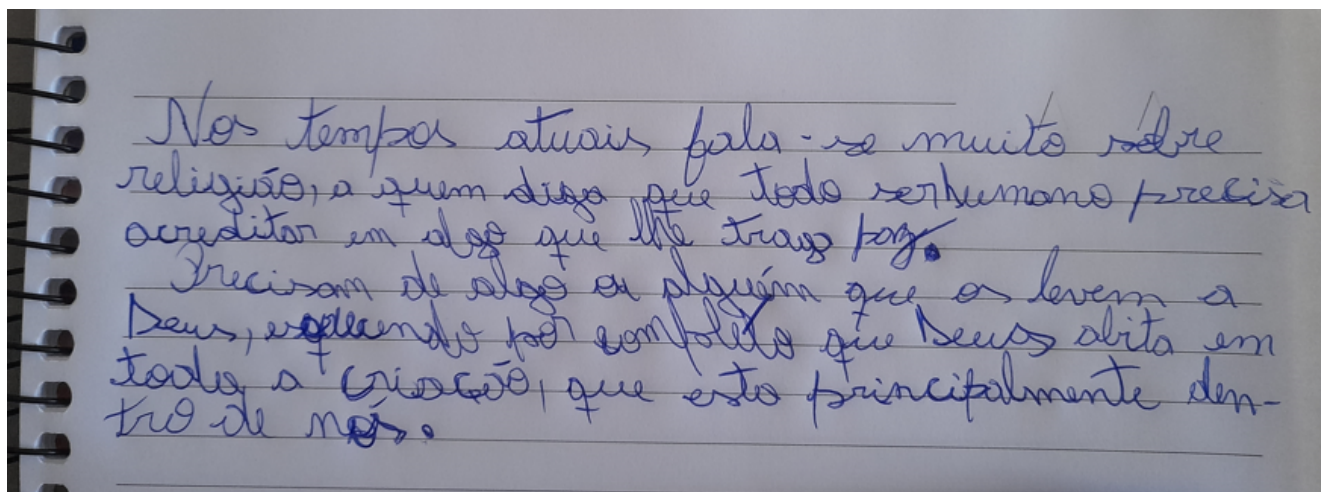 Nos tempos atuais fala-se muito sobre
religião, a quem diga que todo serhumano precisa
acreditar em algo que lhe traga paz.
Precisam de algo ou alguém que os levem a
Deus, esquecendo por completo que Deus abita em
toda a criação, que esta principalmente den-
tro de nós.